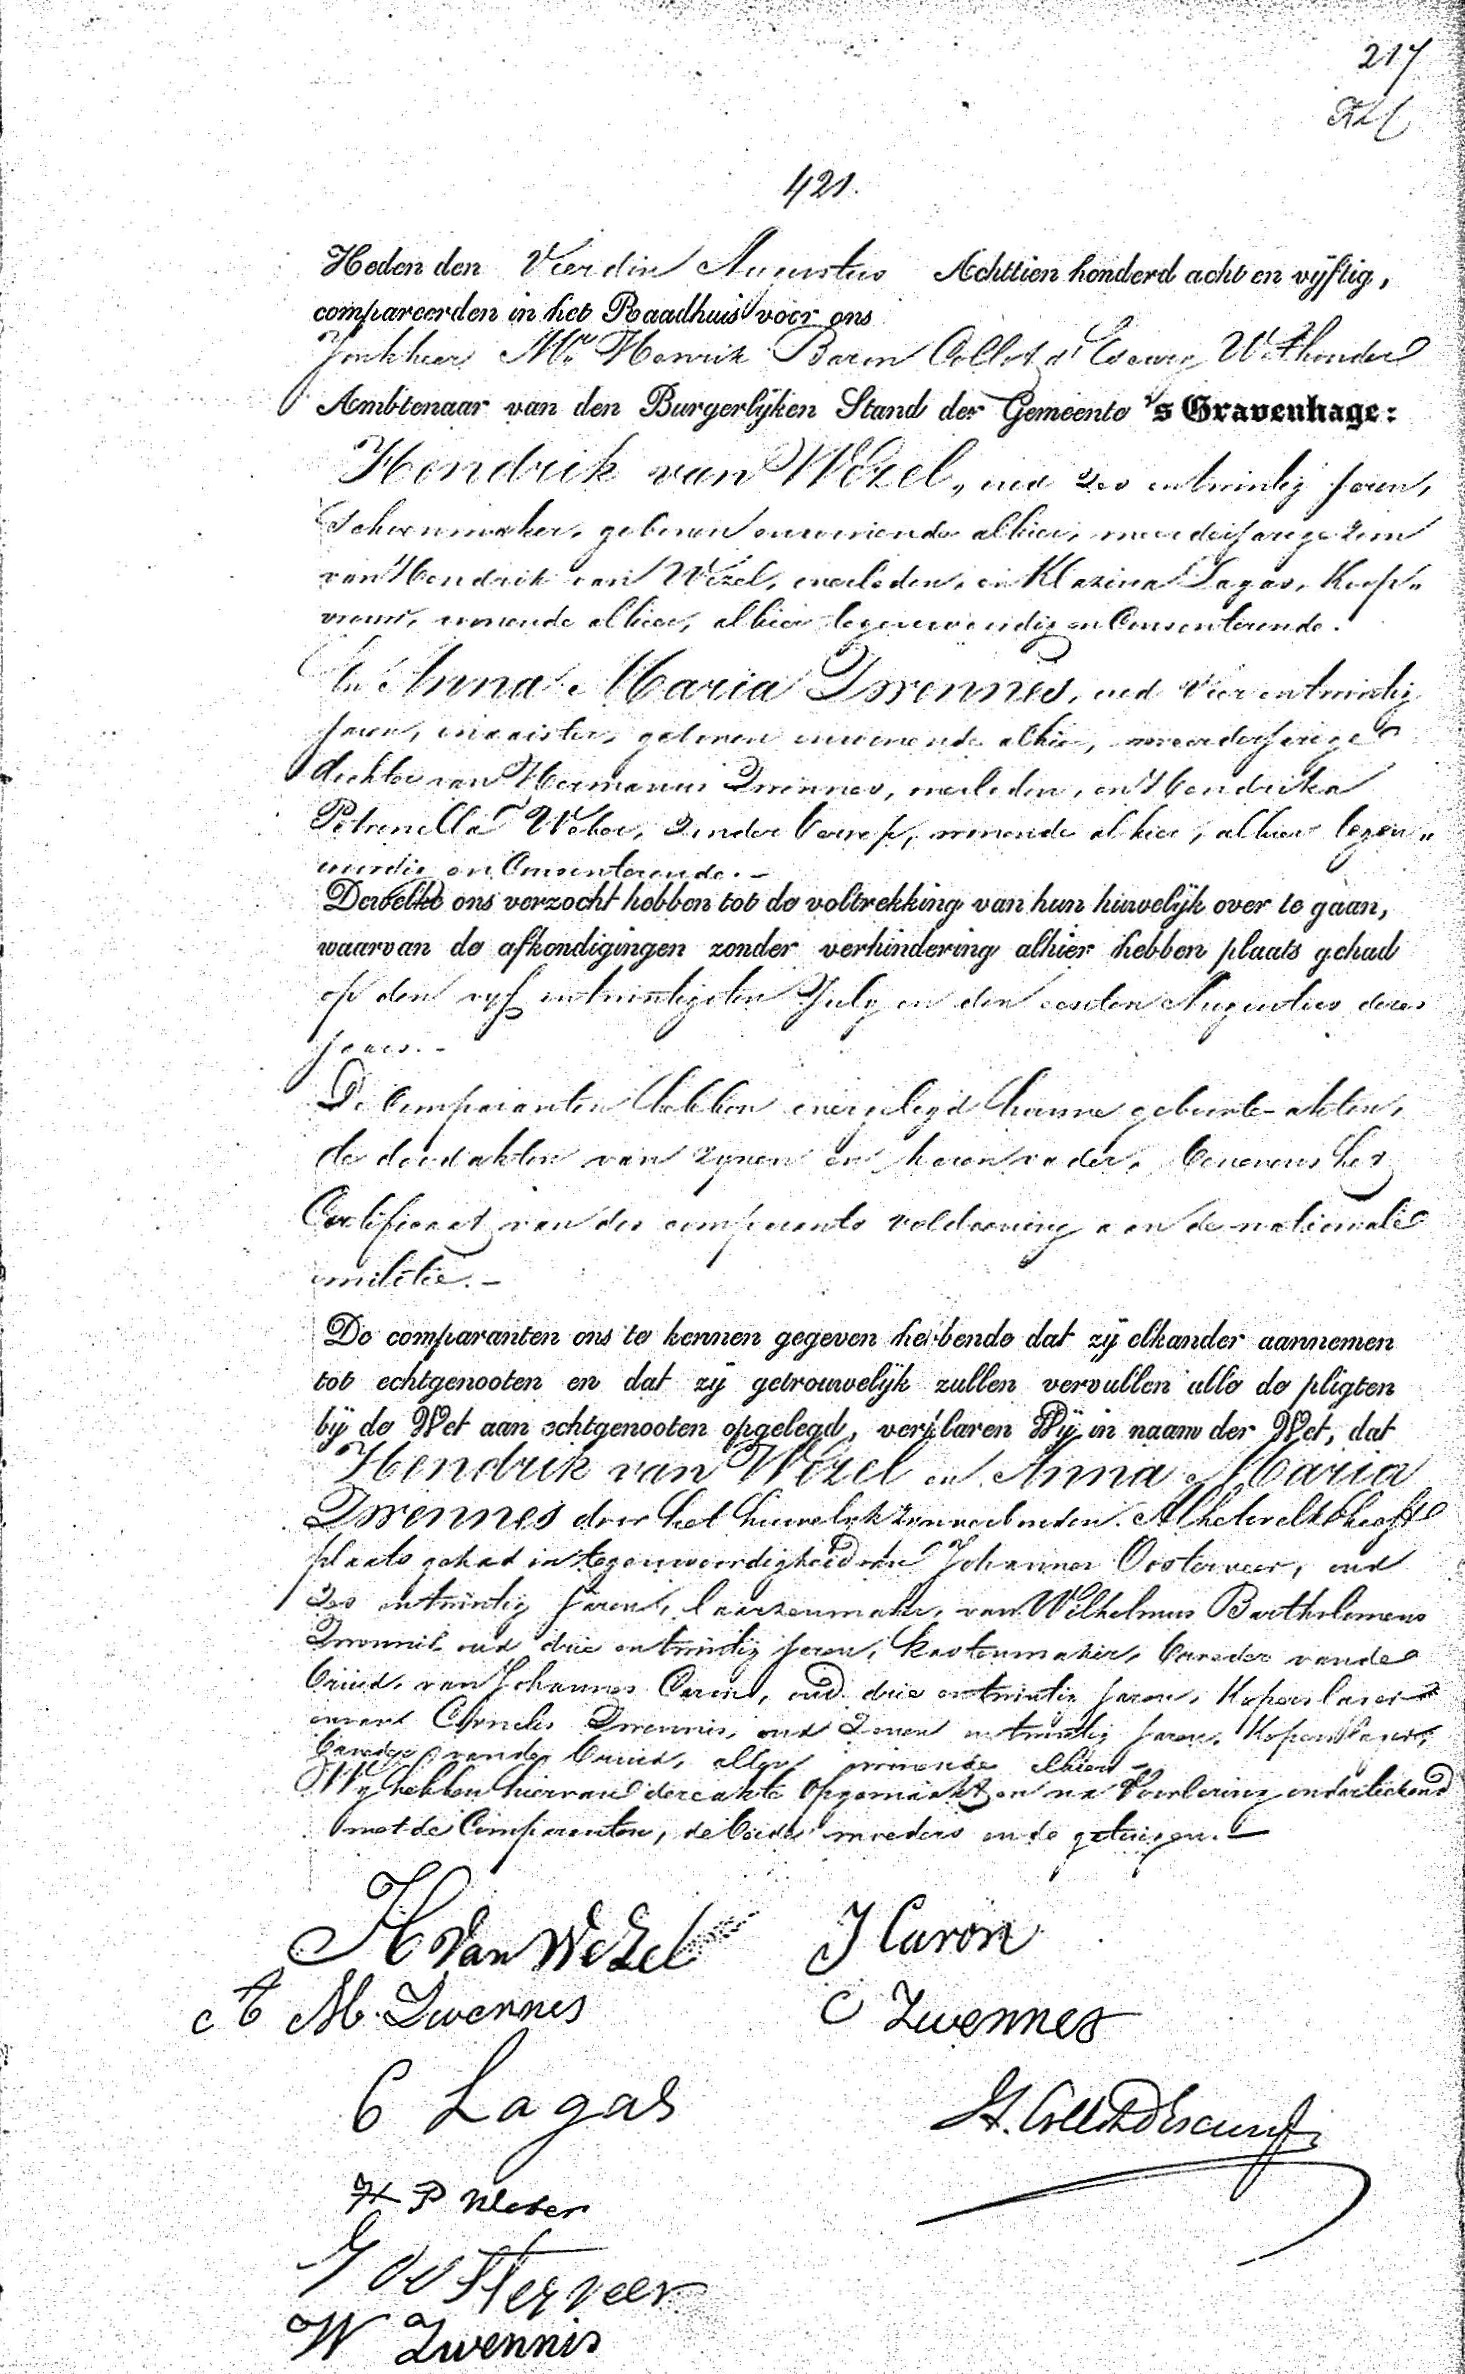 217
421.
Heden den Vierden Augustus Achttien honderd acht en vijftig,
compareerden in het Raadhuis voor ons
Jonkheer Mr. Henrik Baron Collot d'Escury Wethouder
Ambtenaar van den Burgerlijken Stand der Gemeente 's Gravenhage:
Hendrik van Wezel, oud zes entwintig jaren,
Schoenmaker, geboren enwonende alhier, meerderjarige zoon
van Hendrik van Wezel, overleden, en Klazina Lagas, Koop„
vrouw, wonende alhier, alhier tegenwoordig en Consenterende.
En Anna Maria Zwennes, oud Vier entwintig
jaren, naaister, geboren enwonende alhier, meerderjarige
dochter van Hermanus Zwennes, overleden, en Hendrika
Petronella Weber, zonder beroep, wonende alhier, alhier tegen„
woordig en Consenterende.-
Dewelke ons verzocht hebben tot de voltrekking van hun huwelijk over te gaan,
waarvan de afkondigingen zonder verhindering alhier hebben plaats gehad
op den vijf entwintigsten July en den eersten Augustus dezes
jaars.-
De Comparanten hebben overgelegd hunne geboorte-akten,
de doodakten van zynen en haren vader, benevens het
Certificaat van des comparants voldoening aan de nationale
militie.-
De comparanten ons te kennen gegeven hebbende dat zij elkander aannemen
tot echtgenooten en dat zij getrouwelijk zullen vervullen alle de pligten
bij de Wet aan echtgenooten opgelegd, verklaren Wij in naam der Wet, dat
Hendrik van Wezel en Anna Maria
Zwennes door het huwelyk zyn verbonden. Al hetwelk heeft
plaats gehad in tegenwoordigheid van Johannes Oosterveer, oud
zes entwintig jaren, laarzenmaker, van Wilhelmus Bartholomeus
Zwennis oud drie entwintig jaren, kastenmaker, broeder vande
bruid, van Johannes Caron, oud drie entwintig jaren, Koperslager
en van Cornelis Zwennis, oud zeven entwintig jaren, Koperslager,
broeder van de bruid, allen wonende alhier.-
Wy hebben hiervan deze akte opgemaakt en na Voorlezing onderteekend
met de Comparanten, de beide moeders en de getuigen.-
H van Wezel J Caron
A M. Zwennes C Zwennes
C Lagas H. Collot d'Escury
H P Weber
J Oosterveer
W Zwennis